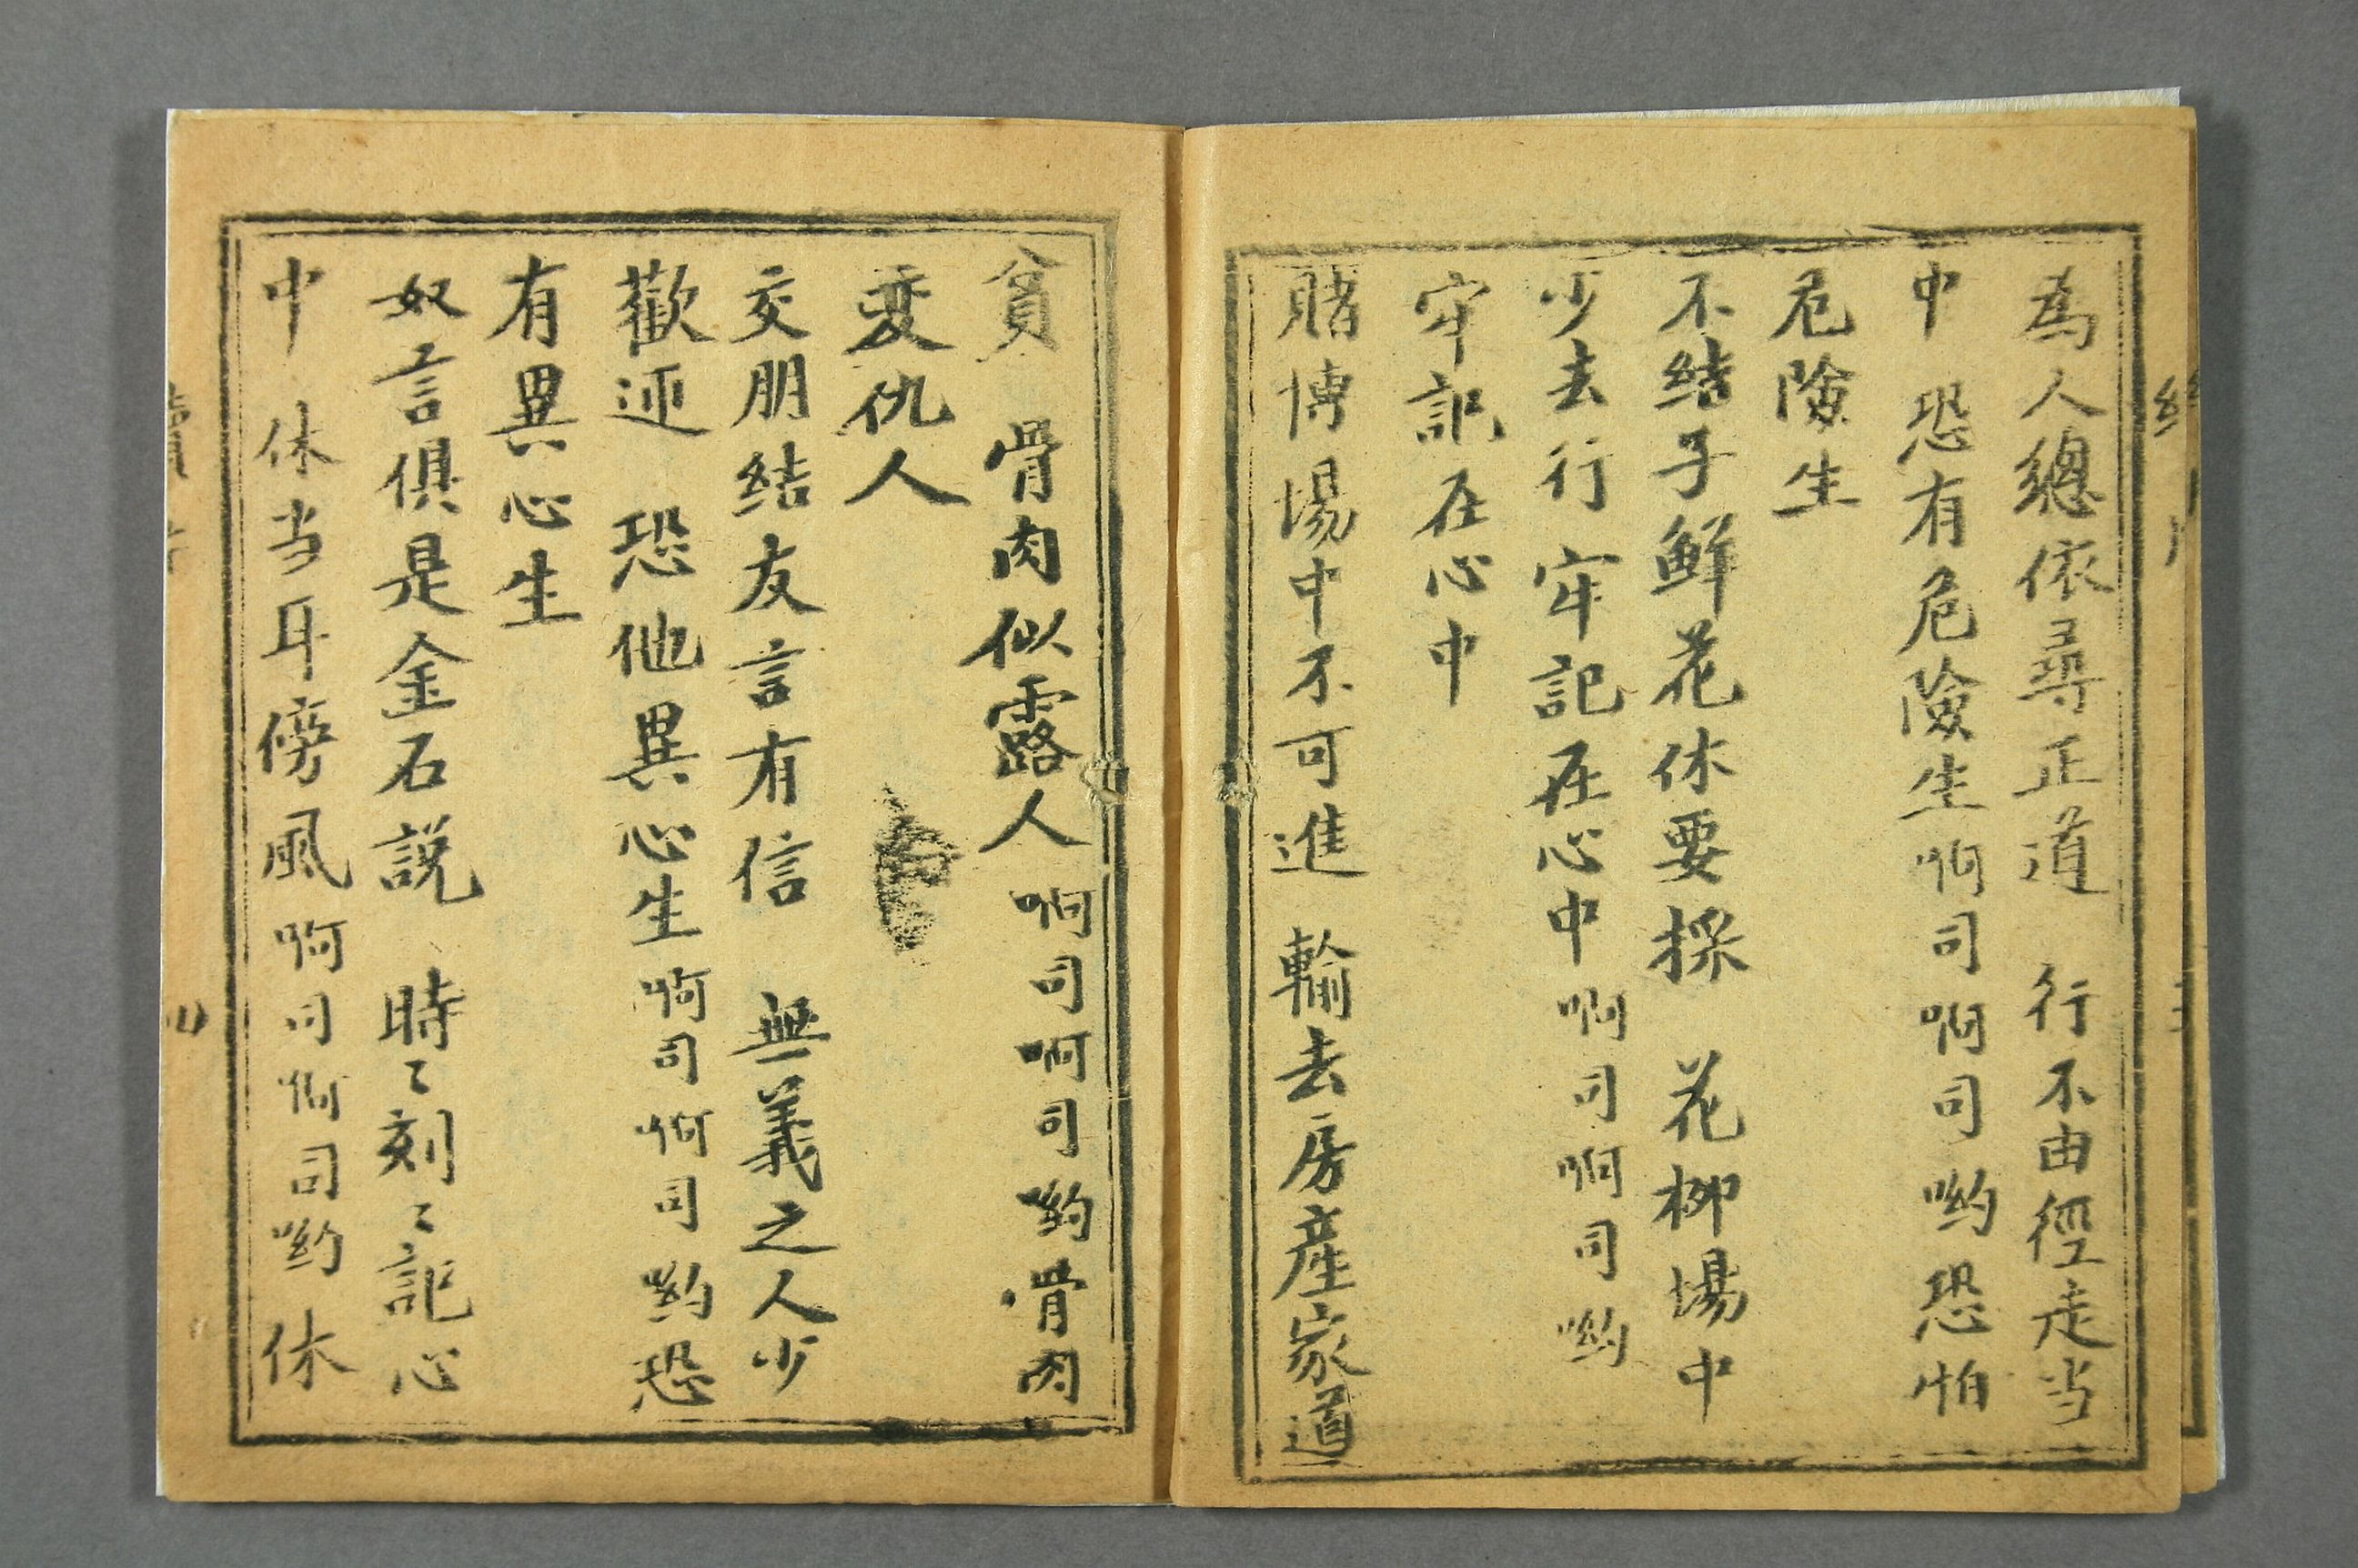 為人總依尋正道　行不由徑走当
中　恐有危險生啊司啊司喲恐怕
危險生
不结子鮮花休要採　花柳場中
少去行牢記在心中啊司啊司喲
牢記在心中
賭博場中不可進　輸去房產家道
貧　骨肉似露人啊司啊司喲骨肉
变仇人
交朋结友言有信　無義之人少
歡迊　恐他異心生啊司啊司喲恐
有異心生
奴言俱是金石説　時〻刻〻記心
中　休当耳傍風啊司啊司喲休